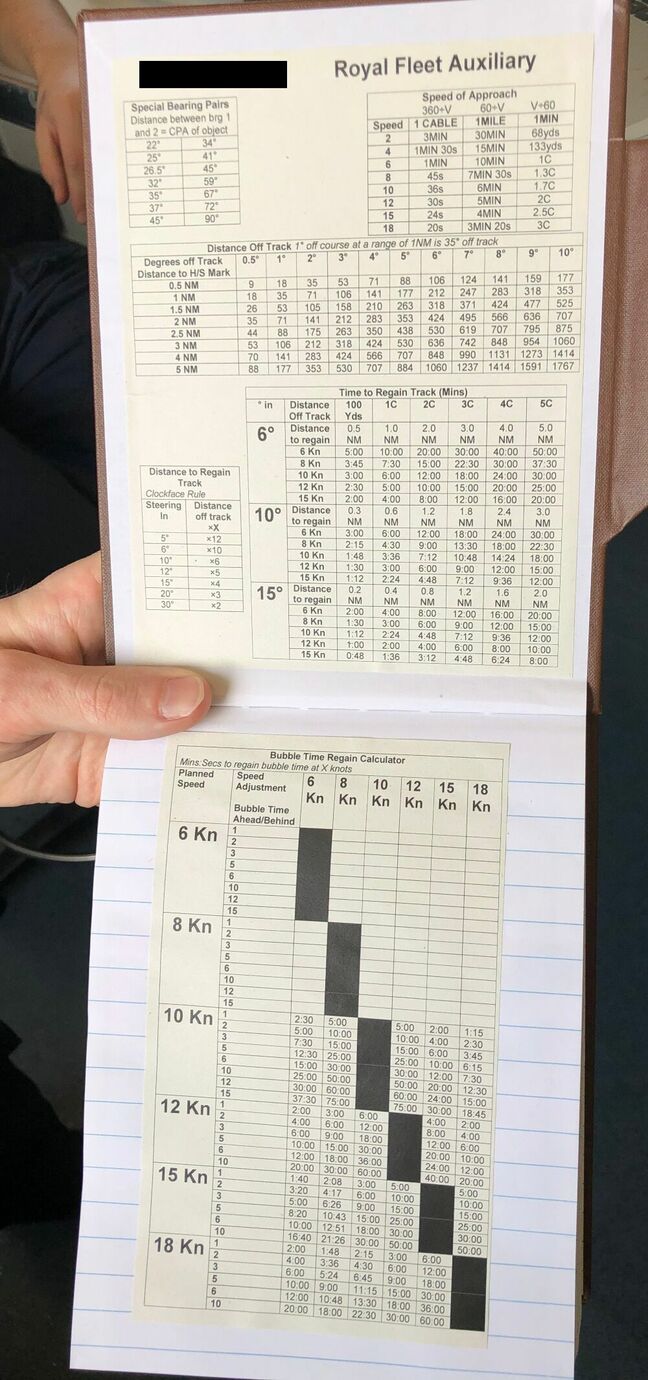 Royal Fleet Auxiliary
Special Bearing Pairs
Distance between brg 1
and 2 = CPA of object
22° 34°
25° 41°
26.5° 45°
32° 59°
35° 67°
37° 72°
45° 90°
Speed of Approach
360÷V 60÷V V÷60
Speed 1 CABLE 1MILE 1MIN
2 3MIN 30MIN 68yds
4 1MIN 30s 15MIN 133yds
6 1MIN 10MIN 1C
8 45s 7MIN 30s 1.3C
10 36s 6MIN 1.7C
12 30s 5MIN 2C
15 24s 4MIN 2.5C
18 20s 3MIN 20s 3C
Distance Off Track 1° off course at a range of 1NM is 35° off track
Degrees off Track 0.5° 1° 2° 3° 4° 5° 6° 7° 8° 9° 10°
Distance to H/S Mark
0.5 NM 9 18 35 53 71 88 106 124 141 159 177
1 NM 18 35 71 106 141 177 212 247 283 318 353
1.5 NM 26 53 105 158 210 263 318 371 424 477 525
2 NM 35 71 141 212 283 353 424 495 566 636 707
2.5 NM 44 88 175 263 350 438 530 619 707 795 875
3 NM 53 106 212 318 424 530 636 742 848 954 1060
4 NM 70 141 283 424 566 707 848 990 1131 1273 1414
5 NM 88 177 353 530 707 884 1060 1237 1414 1591 1767
Distance to Regain
Track
Clockface Rule
Steering Distance
In off track
×X
5° ×12
6° ×10
10° ×6
12° ×5
15° ×4
20° ×3
30° ×2
Time to Regain Track (Mins)
° in Distance 100 1C 2C 3C 4C 5C
Off Track Yds
6° Distance 0.5 1.0 2.0 3.0 4.0 5.0
to regain NM NM NM NM NM NM
6 Kn 5:00 10:00 20:00 30:00 40:00 50:00
8 Kn 3:45 7:30 15:00 22:30 30:00 37:30
10 Kn 3:00 6:00 12:00 18:00 24:00 30:00
12 Kn 2:30 5:00 10:00 15:00 20:00 25:00
15 Kn 2:00 4:00 8:00 12:00 16:00 20:00
10° Distance 0.3 0.6 1.2 1.8 2.4 3.0
to regain NM NM NM NM NM NM
6 Kn 3:00 6:00 12:00 18:00 24:00 30:00
8 Kn 2:15 4:30 9:00 13:30 18:00 22:30
10 Kn 1:48 3:36 7:12 10:48 14:24 18:00
12 Kn 1:30 3:00 6:00 9:00 12:00 15:00
15 Kn 1:12 2:24 4:48 7:12 9:36 12:00
15° Distance 0.2 0.4 0.8 1.2 1.6 2.0
to regain NM NM NM NM NM NM
6 Kn 2:00 4:00 8:00 12:00 16:00 20:00
8 Kn 1:30 3:00 6:00 9:00 12:00 15:00
10 Kn 1:12 2:24 4:48 7:12 9:36 12:00
12 Kn 1:00 2:00 4:00 6:00 8:00 10:00
15 Kn 0:48 1:36 3:12 4:48 6:24 8:00
Bubble Time Regain Calculator
Mins:Secs to regain bubble time at X knots
Planned Speed 6 8 10 12 15 18
Speed Adjustment Kn Kn Kn Kn Kn Kn
Bubble Time
Ahead/Behind
6 Kn 1
2
3
5
6
10
12
15
8 Kn 1
2
3
5
6
10
12
15
10 Kn 1 2:30 5:00 5:00 2:00 1:15
2 5:00 10:00 10:00 4:00 2:30
3 7:30 15:00 15:00 6:00 3:45
5 12:30 25:00 25:00 10:00 6:15
6 15:00 30:00 30:00 12:00 7:30
10 25:00 50:00 50:00 20:00 12:30
12 30:00 60:00 60:00 24:00 15:00
15 37:30 75:00 75:00 30:00 18:45
12 Kn 1 2:00 3:00 6:00 4:00 2:00
2 4:00 6:00 12:00 8:00 4:00
3 6:00 9:00 18:00 12:00 6:00
5 10:00 15:00 30:00 20:00 10:00
6 12:00 18:00 36:00 24:00 12:00
10 20:00 30:00 60:00 40:00 20:00
15 Kn 1 1:40 2:08 3:00 5:00 5:00
2 3:20 4:17 6:00 10:00 10:00
3 5:00 6:26 9:00 15:00 15:00
5 8:20 10:43 15:00 25:00 25:00
6 10:00 12:51 18:00 30:00 30:00
10 16:40 21:26 30:00 50:00 50:00
18 Kn 1 2:00 1:48 2:15 3:00 6:00
2 4:00 3:36 4:30 6:00 12:00
3 6:00 5:24 6:45 9:00 18:00
5 10:00 9:00 11:15 15:00 30:00
6 12:00 10:48 13:30 18:00 36:00
10 20:00 18:00 22:30 30:00 60:00